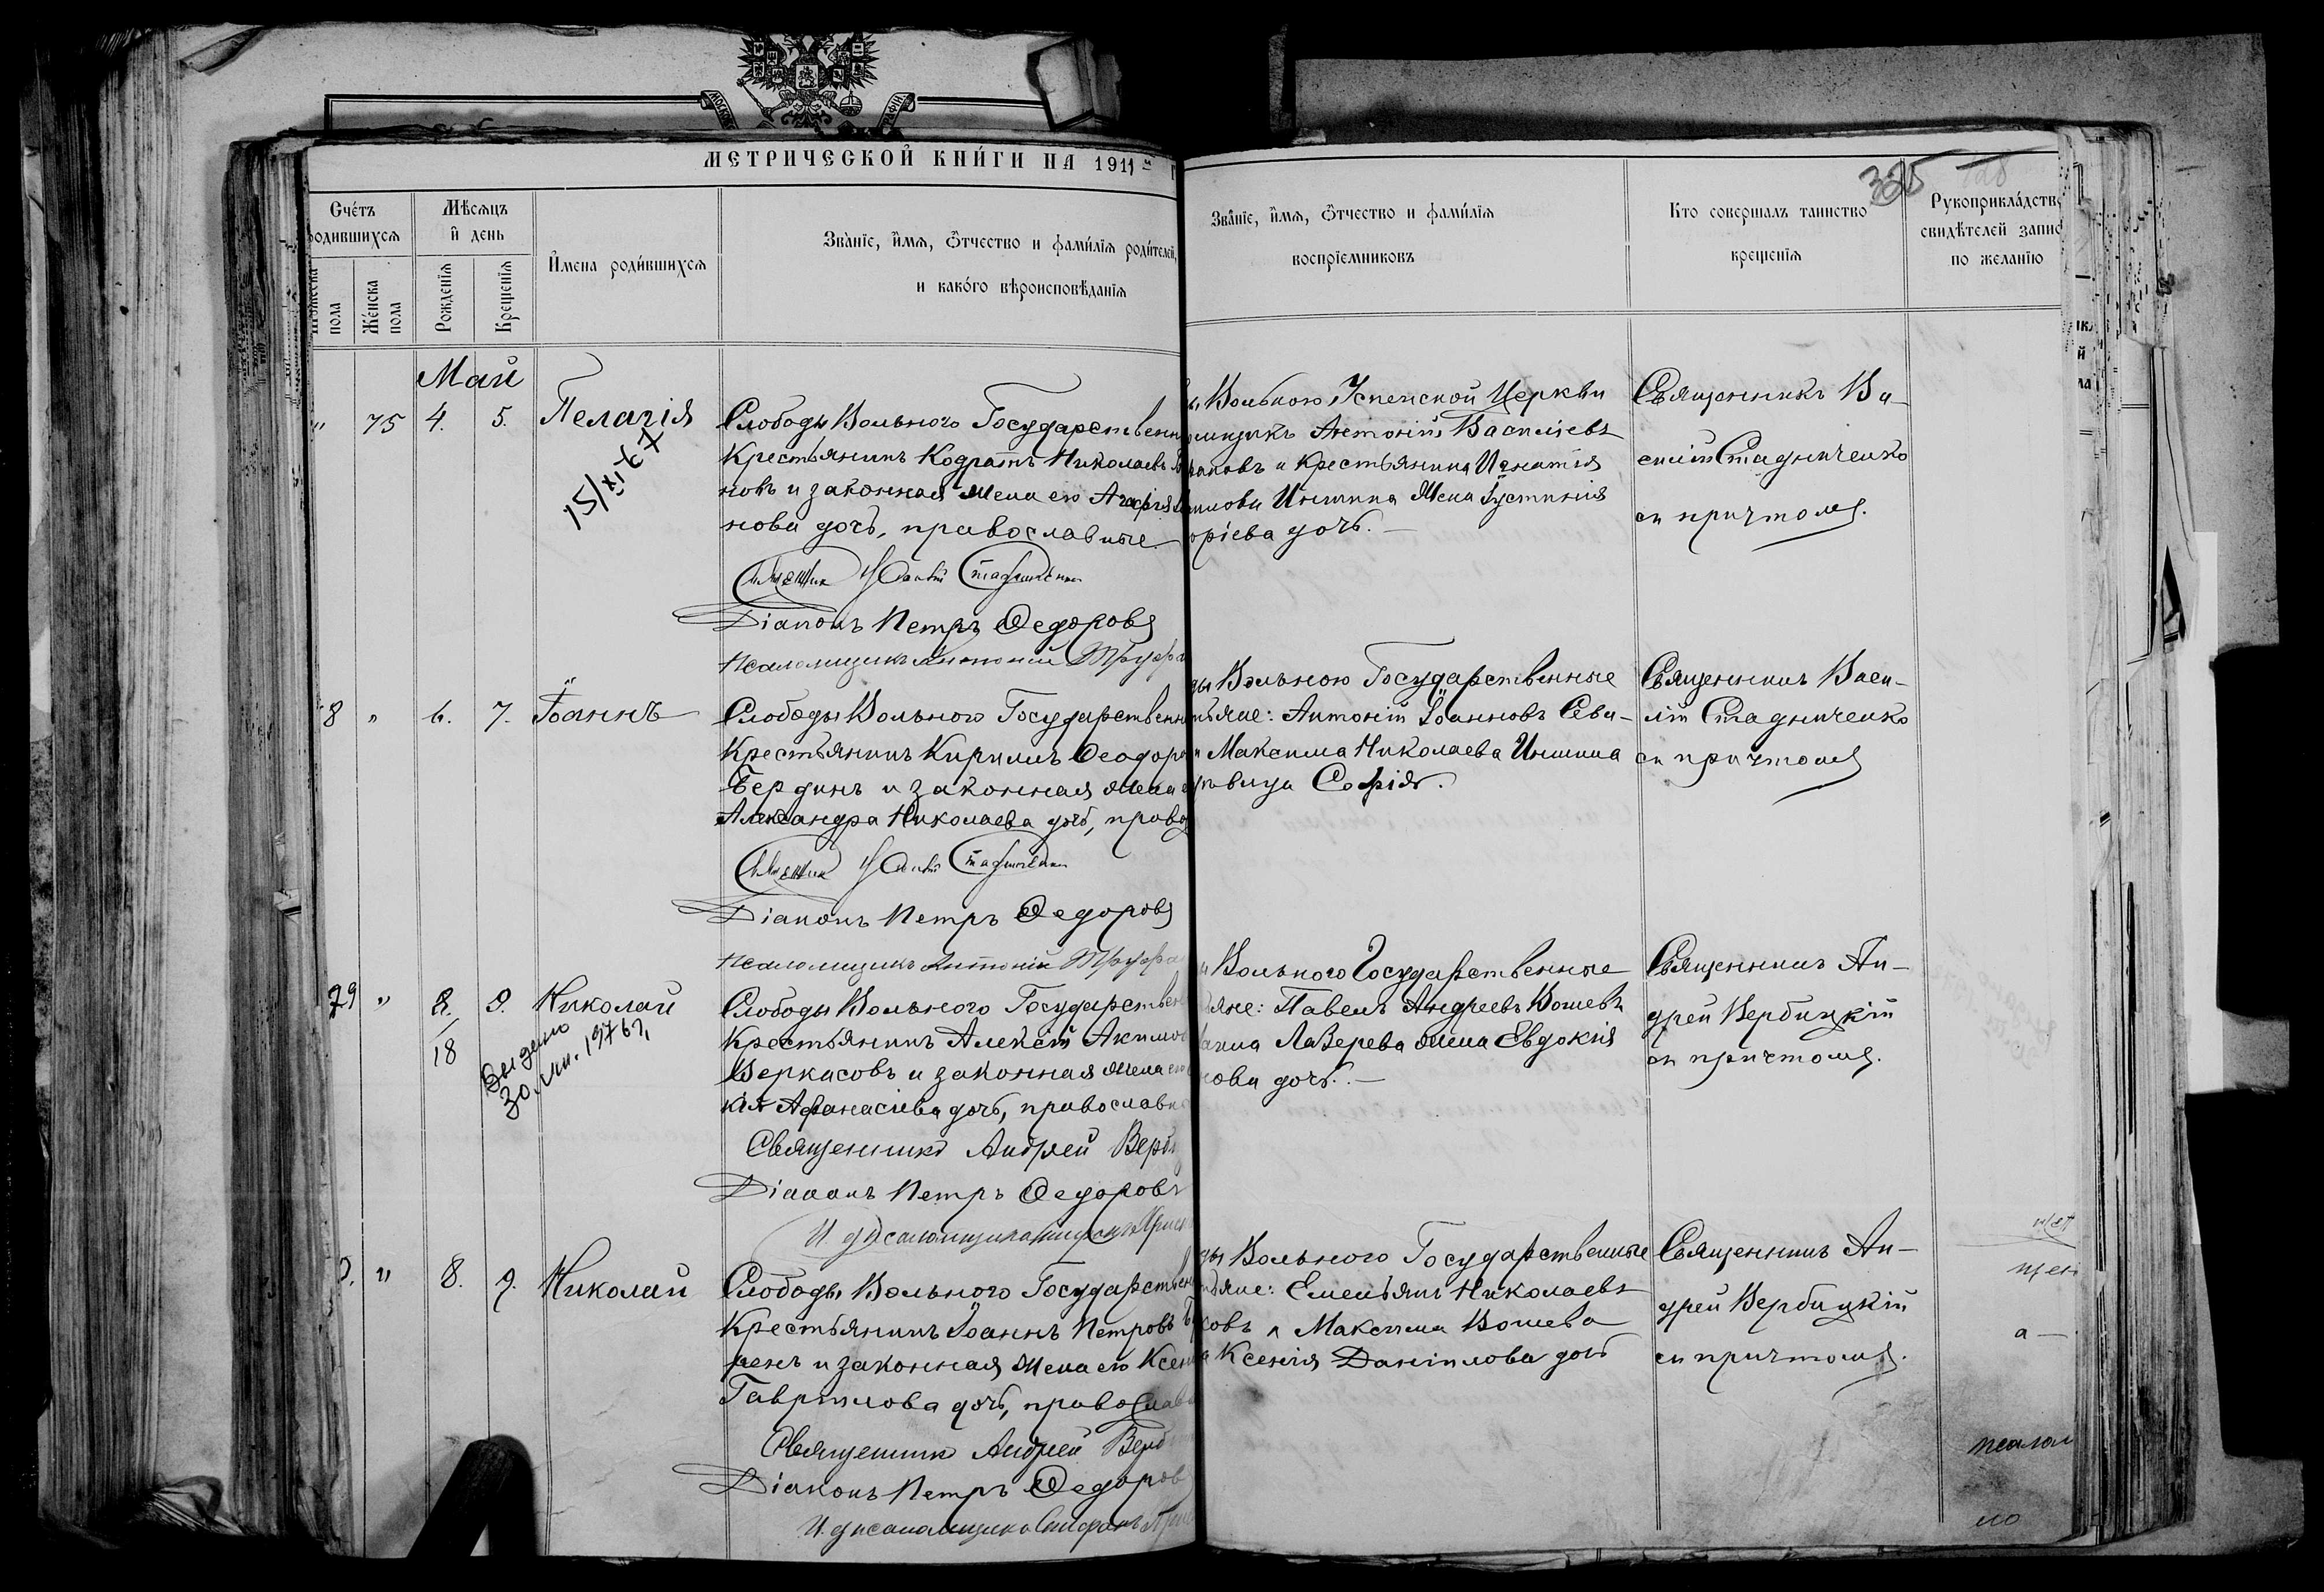 МЕТРИЧЕСКОЙ КНИГИ НА 1911
Счетъ родившихся
Мѣсяцъ и день
Имена родившихся
Званіе, имя, отчество и фамилія родителей,
и какого вѣроисповѣданія
пола
Женска пола
Рожденія
Крещенія
Званіе, имя, отчество и фамилія
воспріемниковъ
Кто совершалъ таинство
крещенія
325
Рукоприкладство
свидѣтелей записи
по желанію
Май
" 75 4. 5. Пелагія
15/XI 67
Слободы Вольнаго Государственн
Крестьянинъ Кодратъ Николаевъ
новъ и законная жена его Агафія
нова дочь, православные.
Діаконъ Петръ Ѳедоровъ
Псаломщикъ Антоній
Вольного Успенской Церкви
Антоній Василіевъ
и крестьянина Игнатія
Иншина жена Іустинія
дочь.
Священникъ Ва-
силій Стадниченко
съ причтомъ.
8 " 6. 7. Іоаннъ
Слободы Вольного Государственн
Крестьянинъ Кириллъ Ѳеодоро
Бердинъ и законная жена
Александра Николаева дочь, право
Діаконъ Петръ Ѳедоровъ
Псаломщикъ Антоній
Вольного Государственные
Антоній Іоанновъ Сева-
Максима Николаева Иншина
вица Софія.
Священникъ Васи-
лій Стадниченко
съ причтомъ
79 " 8. 9. Николай
18
Выдано
30. 1976 г.
Слободы Вольного Государствен
Крестьянинъ Алексѣй Акимов
Веркасовъ и законная жена его
кія Афанасіева дочь, православн
Священникъ Андрей Верб
Діаконъ Петръ Ѳедоровъ
Вольного Государственные
Павелъ Андреевъ Вошевъ
Лазерева жена Евдокія
нова дочь.
Священникъ Ан-
дрей Вербицкій
съ причтомъ.
" 8. 9. Николай
Слободы Вольного Государствен
Крестьянинъ Іоаннъ Петровъ
и законная жена его Ксен
Гавріилова дочь, православ
Священникъ Андрей Верб
Діаконъ Петръ Ѳедоров
Вольного Государственные
Емельянъ Николаевъ
ковъ и Максима Вошева
Ксенія Даніилова дочь
Священникъ Ан-
дрей Вербицкій
съ причтомъ.